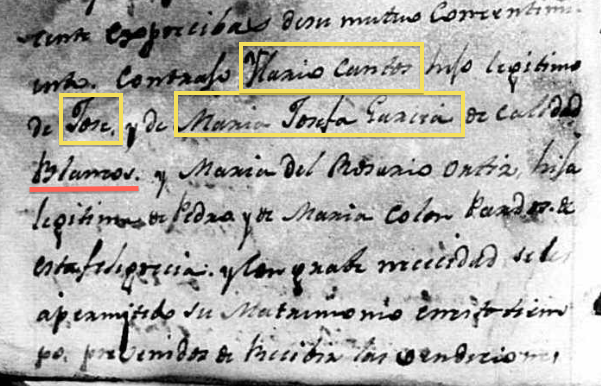 cente expreciba de su mutuo Concentimi
ento. Contrajo Ylario Cantos hijo legitimo
de Jose. y de Maria Josefa Garcia de calidad
Blancos. y Maria del Rosario Ortiz, hija
legitima de Pedro y de Maria Colon Pardos. de
esta feligrecia. y con grabe nececidad se les
a permitido su Matrimonio en este tiem
po, prevenidos de Recibir las vendiciones